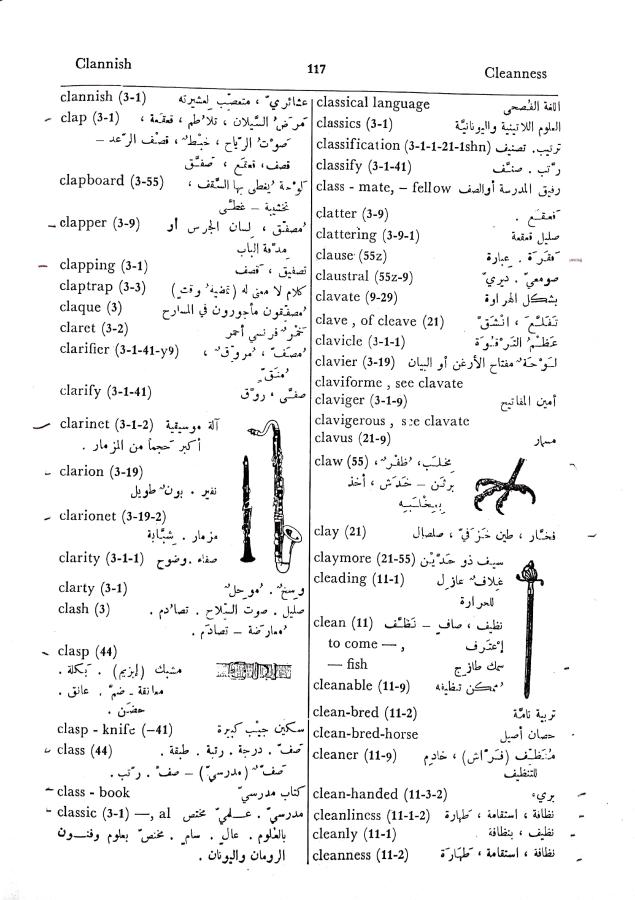 Clannish
117
Cleanness
clannish (3-1) عشائريّ ، متعصّب لعشيرته
clap (3-1) مرض السَّيلان ، تلاطم ، قعقعة ،
صوت الرّياح ، خبط ، قصف الرّعد –
قصف ، قعقع ، صفّق
clapboard (3-55) لوحة يُغطى بها السّقف ،
خشبية – غطّى
clapper (3-9) مُصفّق ، لسان الجرس أو
مدقّة الباب
clapping (3-1) تصفيق ، قصف
claptrap (3-3) كلام لا معنى له (تمضية وقت)
claque (3) مُصفّقون مأجورون في المسارح
claret (3-2) خمر فرنسي أحمر
clarifier (3-1-41-y9) مُصفّ ، مُروّق ،
مُنقّ
clarify (3-1-41) صفّى ، روّق
clarinet (3-1-2) آلة موسيقية
أكبر حجماً من المزمار .
clarion (3-19)
نفير . بوق طويل
clarionet (3-19-2)
مزمار . شبّابة
clarity (3-1-1) صفاء . وضوح
clarty (3-1) وسخ . مُوحل
clash (3) صليل . صوت السّلاح . تصادم .
مُعارضة – تصادَم .
clasp (44)
مشبك (إبزيم) . بكلة .
معانقة - ضمّ . عانق .
حضن .
clasp - knife (–41) سكّين جيب كبيرة
class (44) صفّ . درجة . رتبة . طبقة .
صفّ (مدرسيّ) – صفّ . رتّب .
class - book كتاب مدرسيّ
classic (3-1) —, al مدرسيّ . علميّ مختص
بالعلوم . عالٍ . سامٍ . مختصّ بعلوم وفنون
الرومان واليونان .
classical language اللغة الفُصحى
classics (3-1) العلوم اللاتينية واليونانيّة
classification (3-1-1-21-1shn) ترتيب . تصنيف
classify (3-1-41) رتّب . صنّف
class - mate, – fellow رفيق المدرسة أو الصف
clatter (3-9) قعقع .
clattering (3-9-1) صليل قعقعة
clause (55z) فقرة . عبارة
claustral (55z-9) صومعيّ . ديريّ
clavate (9-29) بشكل الهراوة
clave , of cleave (21) تفلّع ، انشقّ
clavicle (3-1-1) عظم التّرقوة
clavier (3-19) لوحة مفتاح الأرغن أو البيان
claviforme , see clavate
claviger (3-1-9) أمين المفاتيح
clavigerous , see clavate
clavus (21-9) مسمار
claw (55) مخلب ، ظفر ،
برثن – خدش ، أخذ
بمخلبيه
clay (21) فخّار ، طين خزفيّ ، صلصال
claymore (21-55) سيف ذو حدّين
cleading (11-1) غلاف عازل
للحرارة
clean (11) نظيف ، صافٍ – نظّف
to come —, إعترف
— fish سمك طازج
cleanable (11-9) مُمكن تنظيفه
clean-bred (11-2) تربية تامّة
clean-bred-horse حصان أصيل
cleaner (11-9) مُنظّف (فرّاش) ، خادم
للتنظيف
clean-handed (11-3-2) بريء
cleanliness (11-1-2) نظافة ، استقامة ، طهارة
cleanly (11-1) نظيف ، بنظافة
cleanness (11-2) نظافة ، استقامة ، طهارة